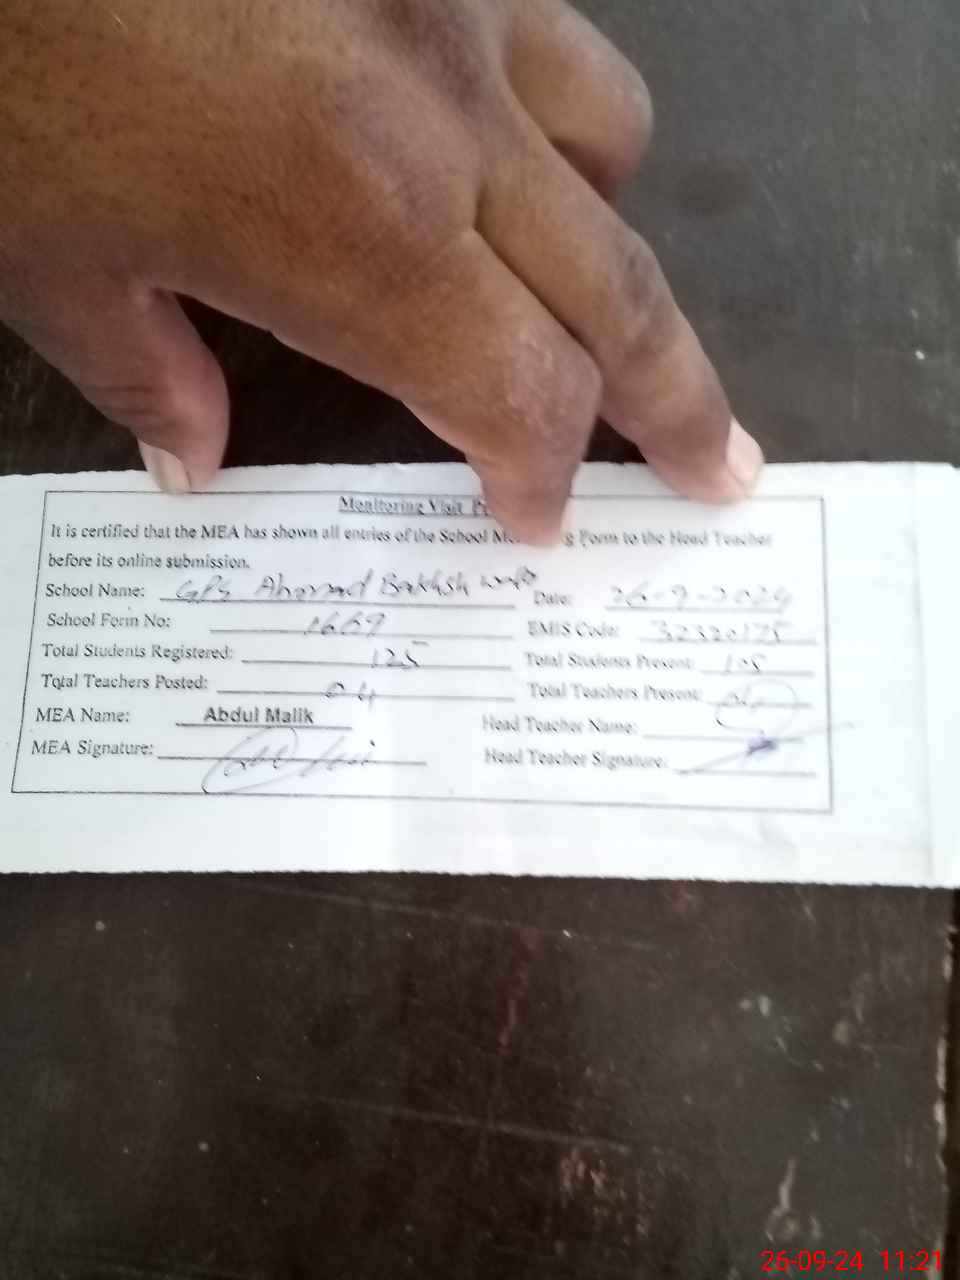 Monitoring Visit
It is certified that the MEA has shown all entries of the School g Form to the Head Teacher
before its online submission.
School Name: GPS Ahmad Bakhsh Date: 26-9-2024
School Form No: 1669 EMIS Code: 32320175
Total Students Registered: 125 Total Students Present: 105
Total Teachers Posted: 04 Total Teachers Present: 04
MEA Name: Abdul Malik Head Teacher Name:
MEA Signature: Head Teacher Signature:
26-09-24 11:21